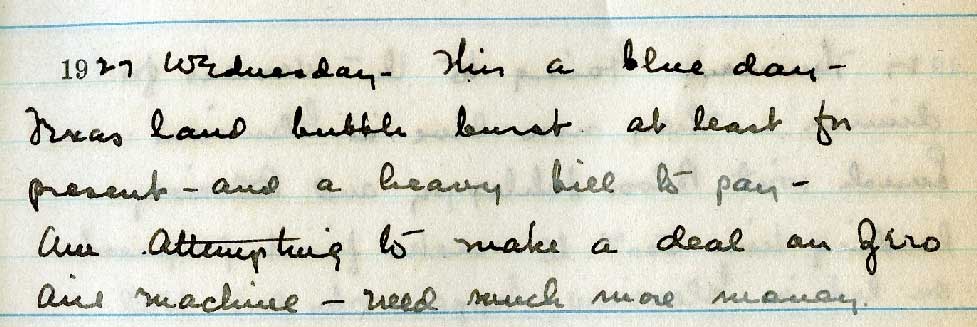 1927 Wednesday - This a blue day -
Texas land bubble burst at least for
present - and a heavy bill to pay -
Am attempting to make a deal on Zero
Aire machine - need much more money.